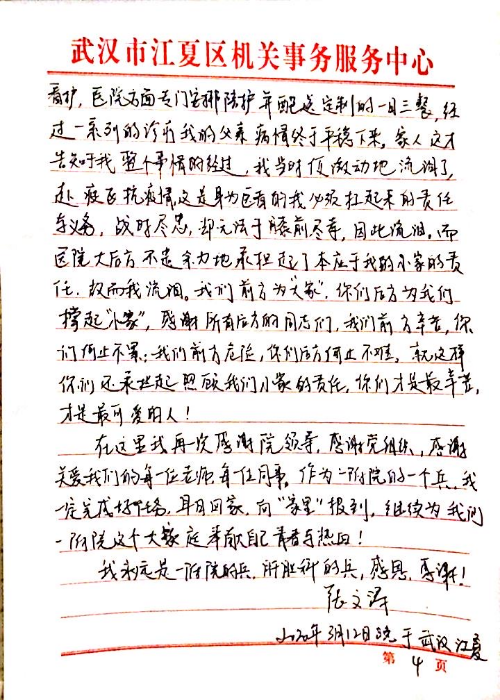 武汉市江夏区机关事务服务中心
看护，医院方面专门安排陪护并配送定制的一日三餐，经
过一系列的诊疗我的父亲病情终于平稳下来。家人这才
告知于我整个事情的经过，我当时顶激动地流泪了，
赴疫区抗疫情，这是身为医者的我必须扛起来的责任
与义务，战时尽忠，却无法于膝前尽孝，因此流泪。而
医院大后方不遗余力地承担起了本应于我的小家的责
任，故而我流泪。我们前方为“大家”，你们后方为我们
撑起“小家”，感谢所有后方的同志们，我们前方辛苦，你
们何止不累；我们前方危险，你们后方何止不难，就这样
你们还承担起照顾我们小家的责任，你们才是最辛苦，
才是最可爱的人！
在这里我再次感谢院领导，感谢党组织，感谢
关爱我们的每一位老师每一位同事。作为一附院的一个兵，我
一定完成好任务，早日回家，向“家里”报到，继续为我们
一附院这个大家庭奉献自己青春与热血！
我永远是一附院的兵，肝胆科的兵，感恩，感谢！
张文海
2020年3月12日晚于武汉江夏
第 4 页